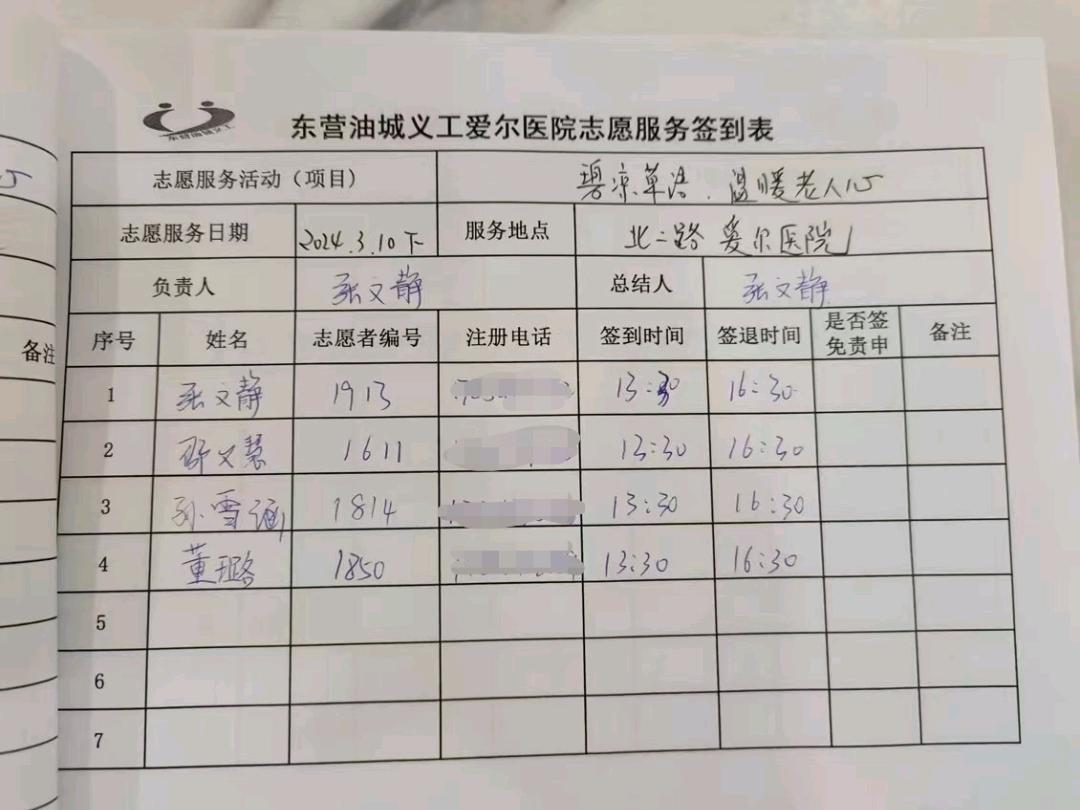 东营油城义工
东营油城义工爱尔医院志愿服务签到表
志愿服务活动（项目） 碧凉草浩.温暖老人心
志愿服务日期 2024.3.10下 服务地点 北二路 爱尔医院
负责人 张文静 总结人 张文静
序号 姓名 志愿者编号 注册电话 签到时间 签退时间 是否签免责申 备注
1 张文静 1913 13:30 16:30
2 文慧 1611 13:30 16:30
3 孙雪涵 1814 13:30 16:30
4 董璐 1850 13:30 16:30
5
6
7
备注